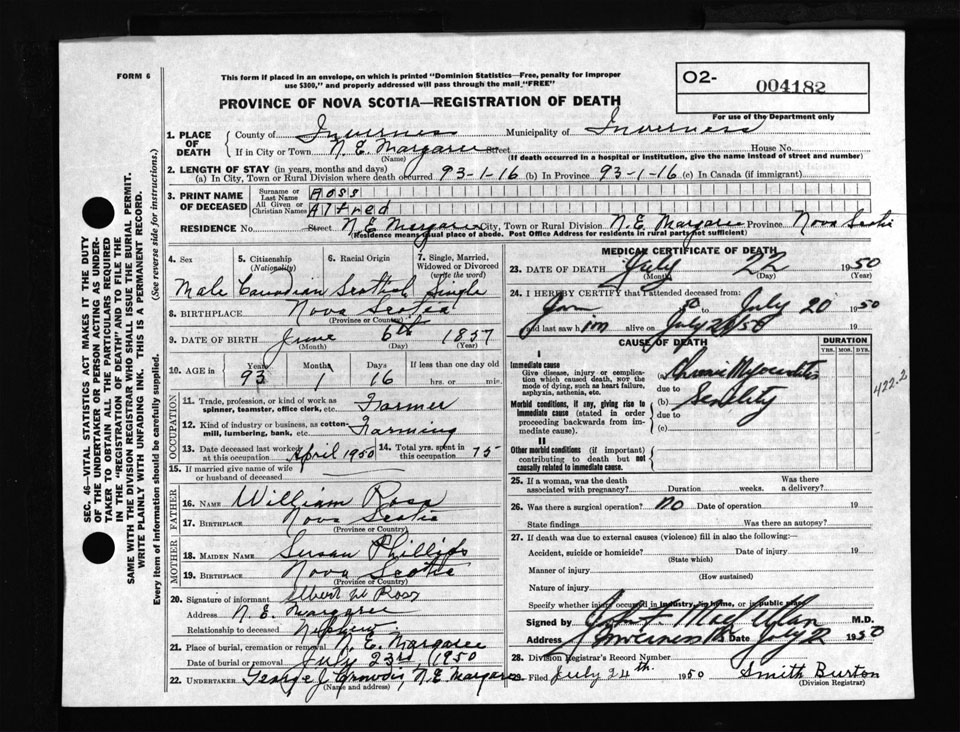 FORM 6
This form if placed in an envelope, on which is printed "Dominion Statistics—Free, penalty for improper
use $300," and properly addressed will pass through the mail "FREE"
O2-
004182
PROVINCE OF NOVA SCOTIA—REGISTRATION OF DEATH
For use of the Department only
1. PLACE OF DEATH
County of Inverness Municipality of Inverness
If in City or Town N. E. Margaree Street House No.
(Name) (If death occurred in a hospital or institution, give the name instead of street and number)
2. LENGTH OF STAY (in years, months and days)
(a) In City, Town or Rural Division where death occurred 93-1-16 (b) In Province 93-1-16 (c) In Canada (if immigrant)
3. PRINT NAME OF DECEASED
Surname or Last Name Ross
All Given or Christian Names Alfred
RESIDENCE No. Street N. E. Margaree City, Town or Rural Division N. E. Margaree Province Nova Scotia
(Residence means usual place of abode. Post Office Address for residents in rural parts not sufficient)
4. Sex
5. Citizenship (Nationality)
6. Racial Origin
7. Single, Married, Widowed or Divorced (write the word)
Male Canadian Scottish Single
8. BIRTHPLACE Nova Scotia
(Province or Country)
9. DATE OF BIRTH June 6th 1857
(Month) (Day) (Year)
10. AGE in
Years Months Days If less than one day old
93 1 16 hrs. or min.
OCCUPATION
11. Trade, profession, or kind of work as spinner, teamster, office clerk, etc. Farmer
12. Kind of industry or business, as cotton-mill, lumbering, bank, etc. Farming
13. Date deceased last worked at this occupation April 1950
14. Total yrs. spent in this occupation 75
15. If married give name of wife or husband of deceased
FATHER
16. NAME William Ross
17. BIRTHPLACE Nova Scotia
(Province or Country)
MOTHER
18. MAIDEN NAME Susan Phillips
19. BIRTHPLACE Nova Scotia
(Province or Country)
20. Signature of informant Elbert W Ross
Address N. E. Margaree
Relationship to deceased Nephew
21. Place of burial, cremation or removal N. E. Margaree
Date of burial or removal July 23rd, 1950
22. UNDERTAKER George J. N. E. Margaree
(Name and address)
MEDICAL CERTIFICATE OF DEATH
23. DATE OF DEATH July 22 1950
(Month) (Day) (Year)
24. I HEREBY CERTIFY that I attended deceased from:
50 to July 20 1950
and last saw him alive on July 20 50 19
CAUSE OF DEATH
DURATION
YRS. MOS. DYS.
I
Immediate cause
Give disease, injury or complication which caused death, nor the mode of dying, such as heart failure, asphyxia, asthenia, etc.
(a) Chronic Myocarditis
due to
Morbid conditions, if any, giving rise to immediate cause (stated in order proceeding backwards from immediate cause).
(b) Senility
due to
(c)
422.2
II
Other morbid conditions (if important) contributing to death but not causally related to immediate cause.
25. If a woman, was the death associated with pregnancy? Duration weeks. Was there a delivery?
26. Was there a surgical operation? No Date of operation 19
State findings Was there an autopsy?
27. If death was due to external causes (violence) fill in also the following:—
Accident, suicide or homicide? Date of injury 19
(State which)
Manner of injury
(How sustained)
Nature of injury
Specify whether injury occurred in industry, in home, or in public place
Signed by M.D.
Address Inverness Date July 1950
28. Division Registrar's Record Number
Filed July 24th 1950 Smith Burton
(Division Registrar)
SEC. 46—VITAL STATISTICS ACT MAKES IT THE DUTY
OF THE UNDERTAKER OR PERSON ACTING AS UNDERTAKER
TO OBTAIN ALL THE PARTICULARS REQUIRED
IN THE "REGISTRATION OF DEATH" AND TO FILE THE
SAME WITH THE DIVISION REGISTRAR WHO SHALL ISSUE THE BURIAL PERMIT.
WRITE PLAINLY WITH UNFADING INK. THIS IS A PERMANENT RECORD.
Every item of information should be carefully supplied. (See reverse side for instructions.)